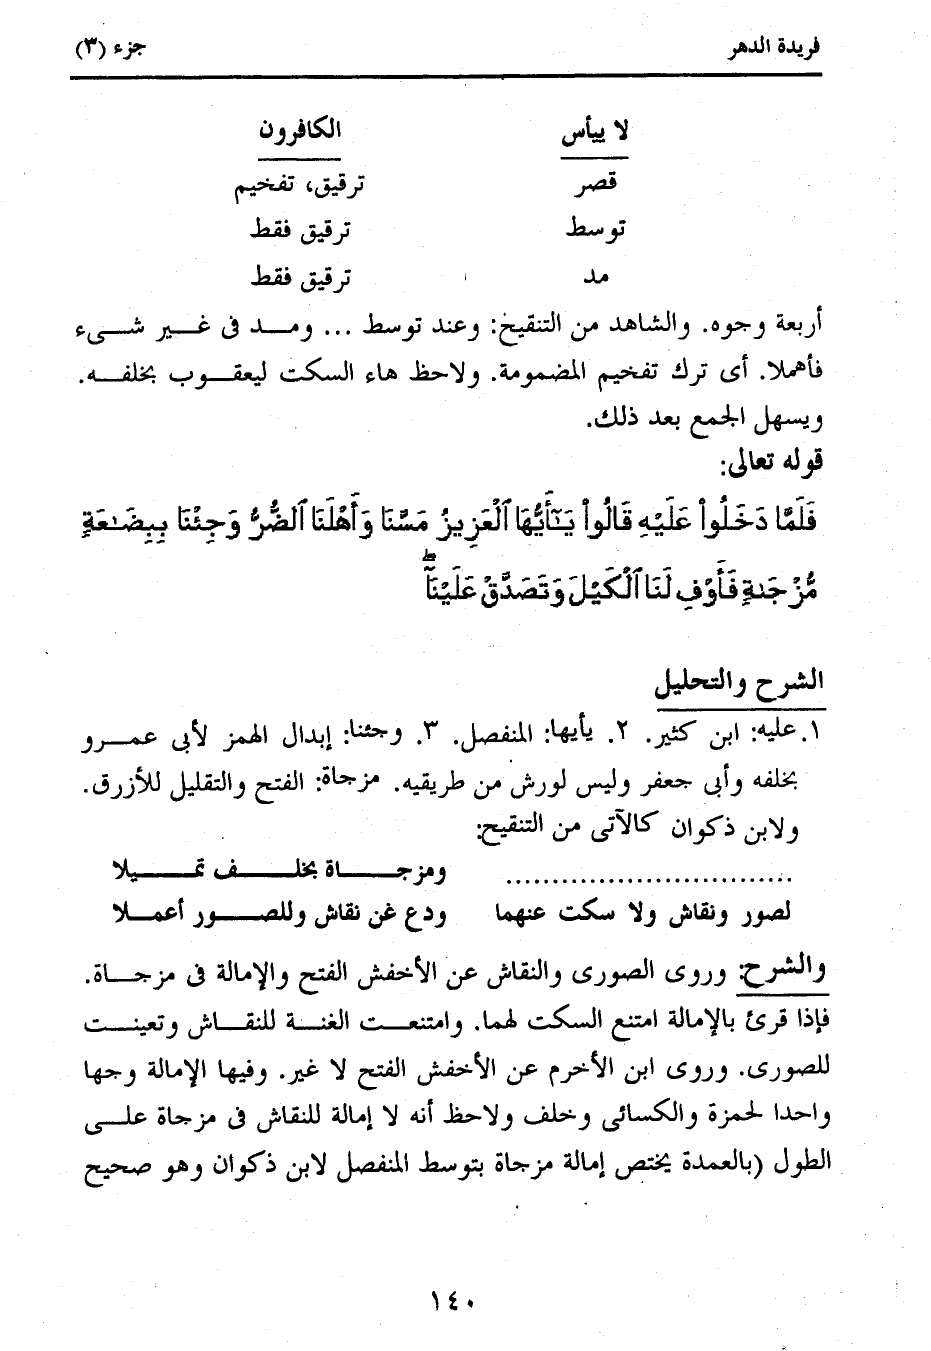 فريدة الدهر جزء (٣)
لا ييأس الكافرون
قصر ترقيق، تفخيم
توسط ترقيق فقط
مد ترقيق فقط
أربعة وجوه. والشاهد من التنقيخ: وعند توسط ... ومد فى غير شىء
فأهملا. أى ترك تفخيم المضمومة. ولاحظ هاء السكت ليعقوب بخلفه.
ويسهل الجمع بعد ذلك.
قوله تعالى:
فَلَمَّا دَخَلُوا۟ عَلَيْهِ قَالُوا۟ يَـٰٓأَيُّهَا ٱلْعَزِيزُ مَسَّنَا وَأَهْلَنَا ٱلضُّرُّ وَجِئْنَا بِبِضَـٰعَةٍ
مُّزْجَىٰةٍ فَأَوْفِ لَنَا ٱلْكَيْلَ وَتَصَدَّقْ عَلَيْنَآ ۖ
الشرح والتحليل
١. عليه: ابن كثير. ٢. يأيها: المنفصل. ٣. وجئنا: إبدال الهمز لأبى عمرو
بخلفه وأبى جعفر وليس لورش من طريقيه. مزجاة: الفتح والتقليل للأزرق.
ولابن ذكوان كالآتى من التنقيح:
.............................. ومزجاة بخلف تميلا
لصور ونقاش ولا سكت عنهما ودع غن نقاش وللصور أعملا
والشرح: وروى الصورى والنقاش عن الأخفش الفتح والإمالة فى مزجاة.
فإذا قرئ بالإمالة امتنع السكت لهما. وامتنعت الغنة للنقاش وتعينت
للصورى. وروى ابن الأخرم عن الأخفش الفتح لا غير. وفيها الإمالة وجها
واحدا لحمزة والكسائى وخلف ولاحظ أنه لا إمالة للنقاش فى مزجاة على
الطول (بالعمدة يختص إمالة مزجاة بتوسط المنفصل لابن ذكوان وهو صحيح
١٤٠